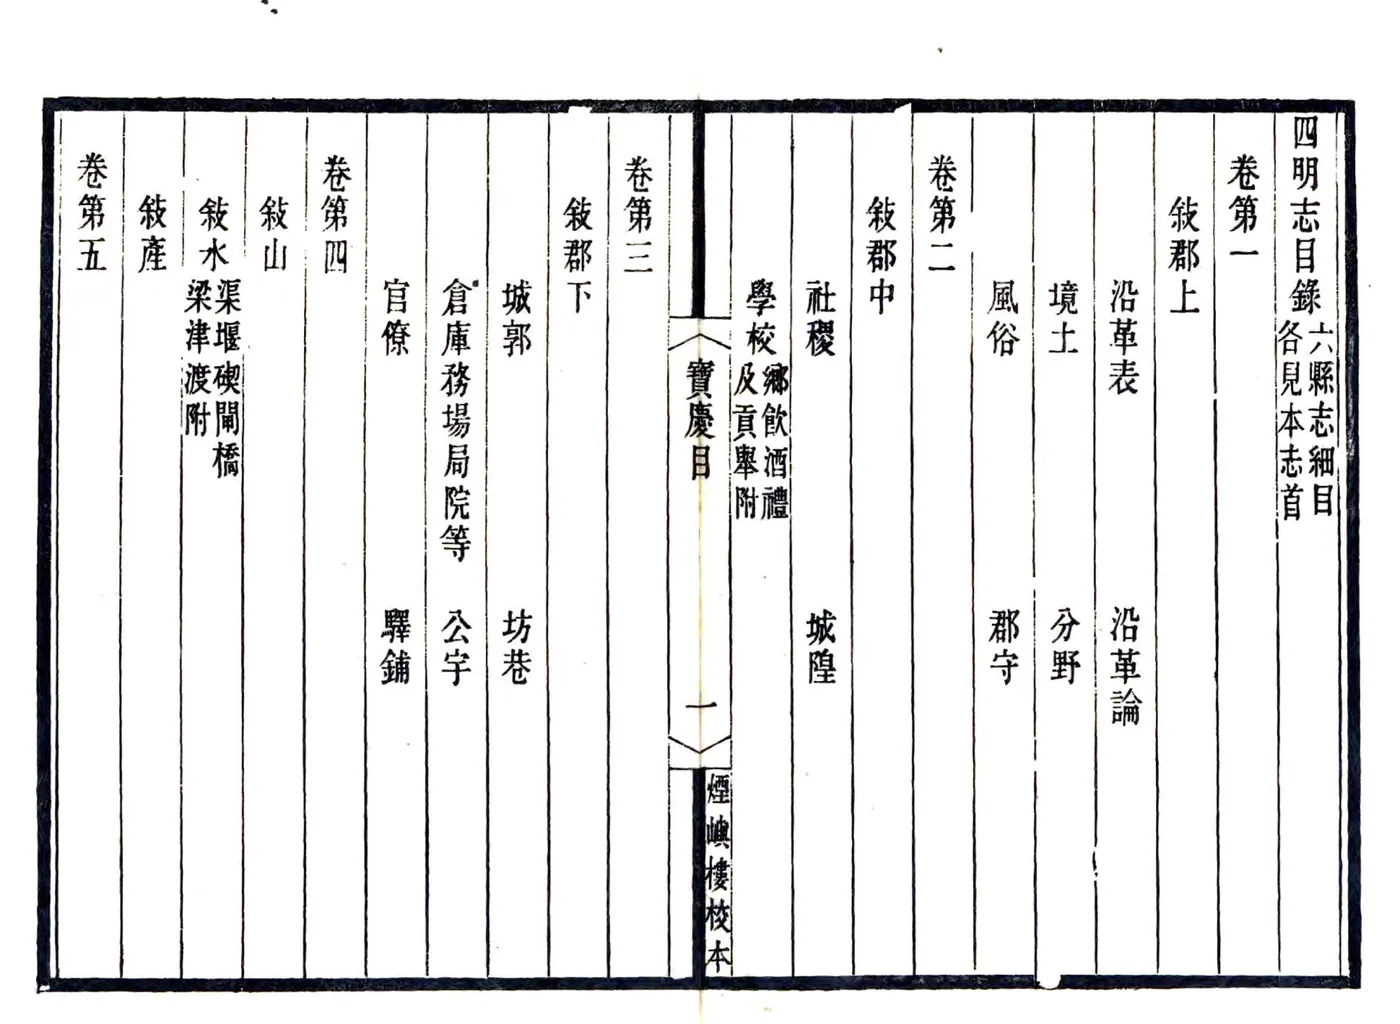 四明志目錄六縣志細目各見本志首
卷第一
敍郡上
沿革表　沿革論
境土　分野
風俗　郡守
卷第二
敍郡中
社稷　城隍
學校鄉飲酒禮及貢舉附
寶慶目　一　煙嶼樓校本
卷第三
敍郡下
城郭　坊巷
倉庫務場局院等　公宇
官僚　驛鋪
卷第四
敍山
敍水渠堰碶閘橋梁津渡附
敍產
卷第五